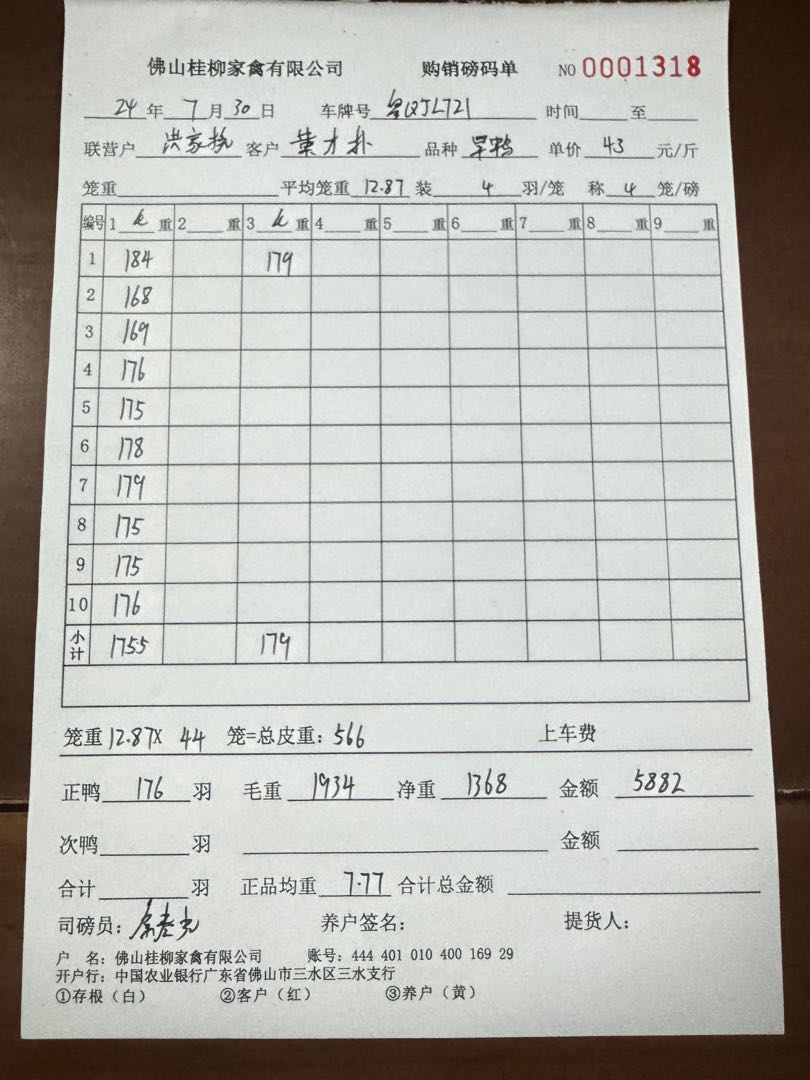 佛山桂柳家禽有限公司 购销磅码单 NO 0001318
24 年 7 月 30 日 车牌号 QJL721 时间 至
联营户 洪家 客户 叶才朴 品种 旱鸭 单价 43 元/斤
笼重 平均笼重 12.87 装 4 羽/笼 称 4 笼/磅
编号 1 重 2 重 3 重 4 重 5 重 6 重 7 重 8 重 9 重
1 184 179
2 168
3 169
4 176
5 175
6 178
7 179
8 175
9 175
10 176
小计 1755 179
笼重 12.87X 44 笼=总皮重: 566 上车费
正鸭 176 羽 毛重 1934 净重 1368 金额 5882
次鸭 羽 金额
合计 羽 正品均重 7.77 合计总金额
司磅员: 养户签名: 提货人:
户 名: 佛山桂柳家禽有限公司 账号: 444 401 010 400 169 29
开户行: 中国农业银行广东省佛山市三水区三水支行
①存根(白) ②客户(红) ③养户(黄)